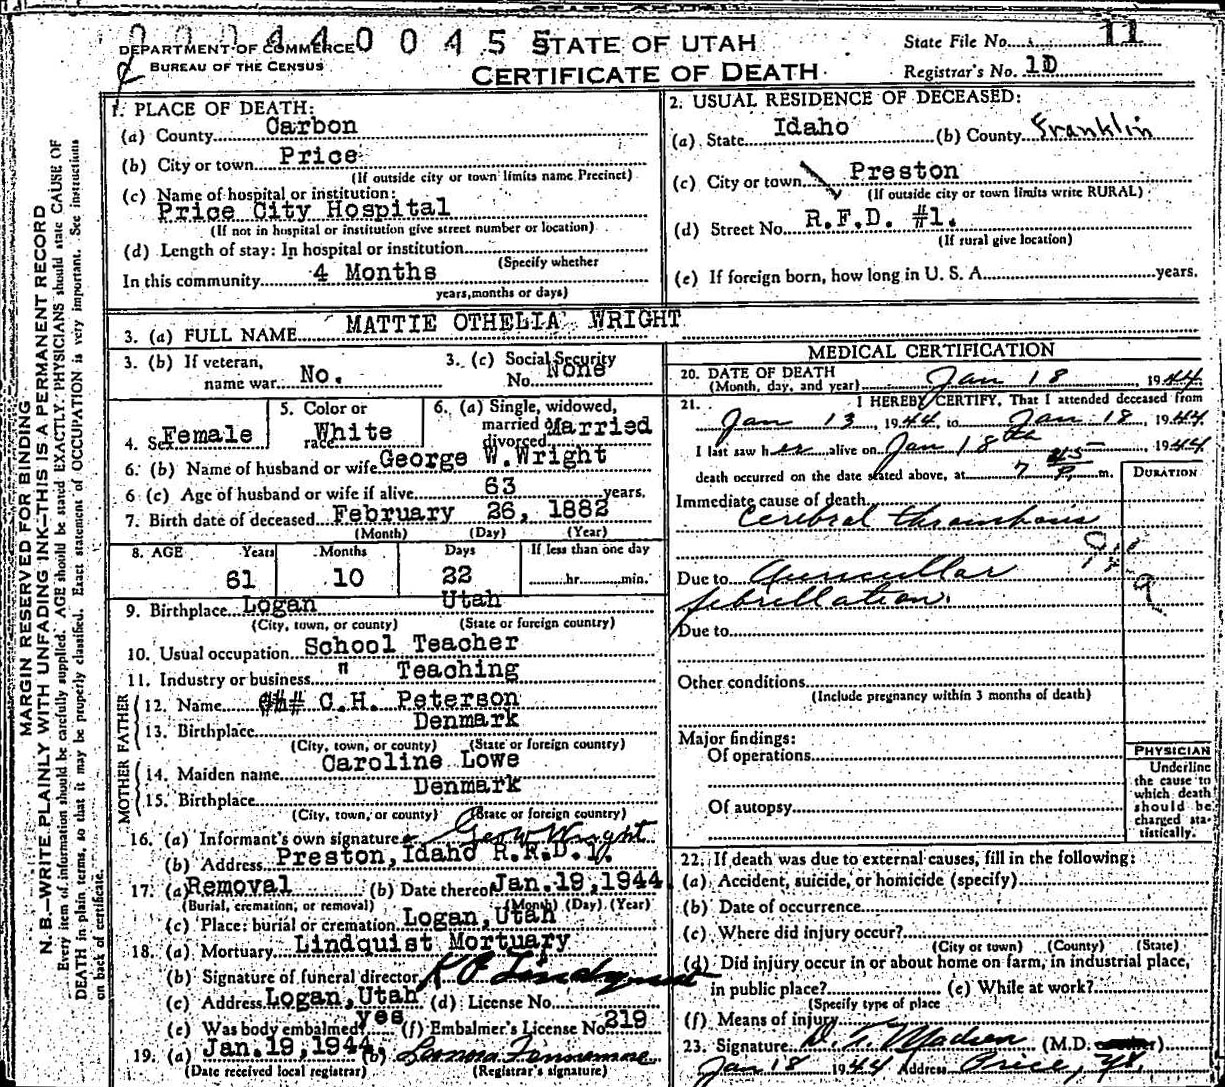 DEPARTMENT OF COMMERCE
BUREAU OF THE CENSUS
STATE OF UTAH
CERTIFICATE OF DEATH
State File No. 11
Registrar's No. 10
MARGIN RESERVED FOR BINDING
N. B.—WRITE PLAINLY WITH UNFADING INK—THIS IS A PERMANENT RECORD
Every item of information should be carefully supplied. AGE should be stated EXACTLY. PHYSICIANS should state CAUSE OF
DEATH in plain terms, so that it may be properly classified. Exact statement of OCCUPATION is very important. See instructions
on back of certificate.
1. PLACE OF DEATH:
(a) County Carbon
(b) City or town Price
(If outside city or town limits name Precinct)
(c) Name of hospital or institution:
Price City Hospital
(If not in hospital or institution give street number or location)
(d) Length of stay: In hospital or institution
(Specify whether
In this community 4 Months
years, months or days)
2. USUAL RESIDENCE OF DECEASED:
(a) State Idaho (b) County Franklin
(c) City or town Preston
(If outside city or town limits write RURAL)
(d) Street No. R.F.D. #1.
(If rural give location)
(e) If foreign born, how long in U. S. A. years.
3. (a) FULL NAME MATTIE OTHELIA WRIGHT
3. (b) If veteran, name war No.
3. (c) Social Security No. None
4. Sex Female
5. Color or race White
6. (a) Single, widowed, married or divorced Married
6. (b) Name of husband or wife George W. Wright
6 (c) Age of husband or wife if alive 63 years.
7. Birth date of deceased February 26, 1882
(Month) (Day) (Year)
8. AGE Years Months Days If less than one day
61 10 22 hr. min.
9. Birthplace Logan Utah
(City, town, or county) (State or foreign country)
10. Usual occupation School Teacher
11. Industry or business " Teaching
FATHER
12. Name C.H. Peterson
13. Birthplace Denmark
(City, town, or county) (State or foreign country)
MOTHER
14. Maiden name Caroline Lowe
15. Birthplace Denmark
(City, town, or county) (State or foreign country)
16. (a) Informant's own signature Geo W Wright
(b) Address Preston, Idaho R.F.D.1.
17. (a) Removal (b) Date thereof Jan. 19, 1944
(Burial, cremation, or removal) (Month) (Day) (Year)
(c) Place: burial or cremation Logan, Utah
18. (a) Mortuary Lindquist Mortuary
(b) Signature of funeral director Lindquist
(c) Address Logan, Utah (d) License No.
(e) Was body embalmed? yes (f) Embalmer's License No. 219
19. (a) Jan. 19, 1944 (b)
(Date received local registrar) (Registrar's signature)
MEDICAL CERTIFICATION
20. DATE OF DEATH
(Month, day, and year) Jan 18, 1944
21. I HEREBY CERTIFY, That I attended deceased from
Jan 13, 1944, to Jan 18, 1944
I last saw her alive on Jan 18th, 1944
death occurred on the date stated above, at 7 45 P. m.
DURATION
Immediate cause of death
Cerebral thrombosis
Due to Auricular
fibrillation.
Due to
Other conditions
(Include pregnancy within 3 months of death)
Major findings:
Of operations
Of autopsy
PHYSICIAN
Underline
the cause to
which death
should be
charged sta-
tistically.
22. If death was due to external causes, fill in the following:
(a) Accident, suicide, or homicide (specify)
(b) Date of occurrence
(c) Where did injury occur?
(City or town) (County) (State)
(d) Did injury occur in or about home on farm, in industrial place,
in public place? (e) While at work?
(Specify type of place
(f) Means of injury
23. Signature Madsen (M.D.
Jan 18 1944 Address Price,